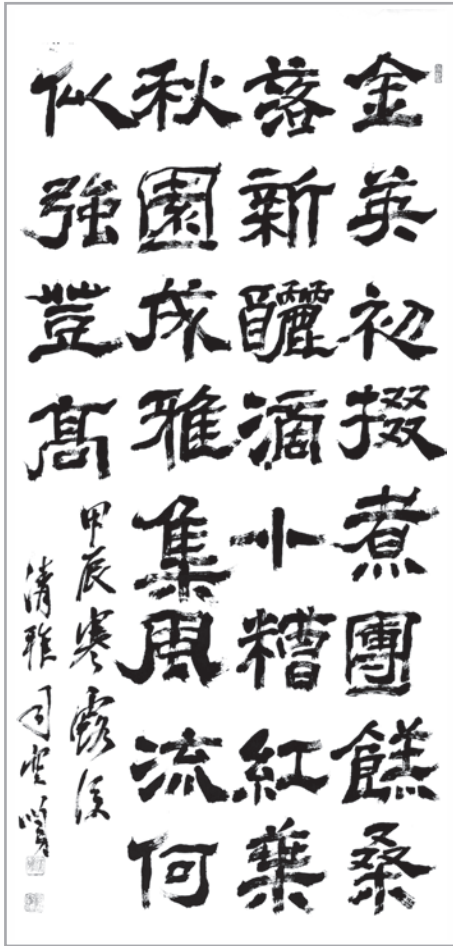 金英初掇煮團餻桑
落新釃滴小糟紅葉
秋園成雅集風流何
似強登高
甲辰寒露後
清雅